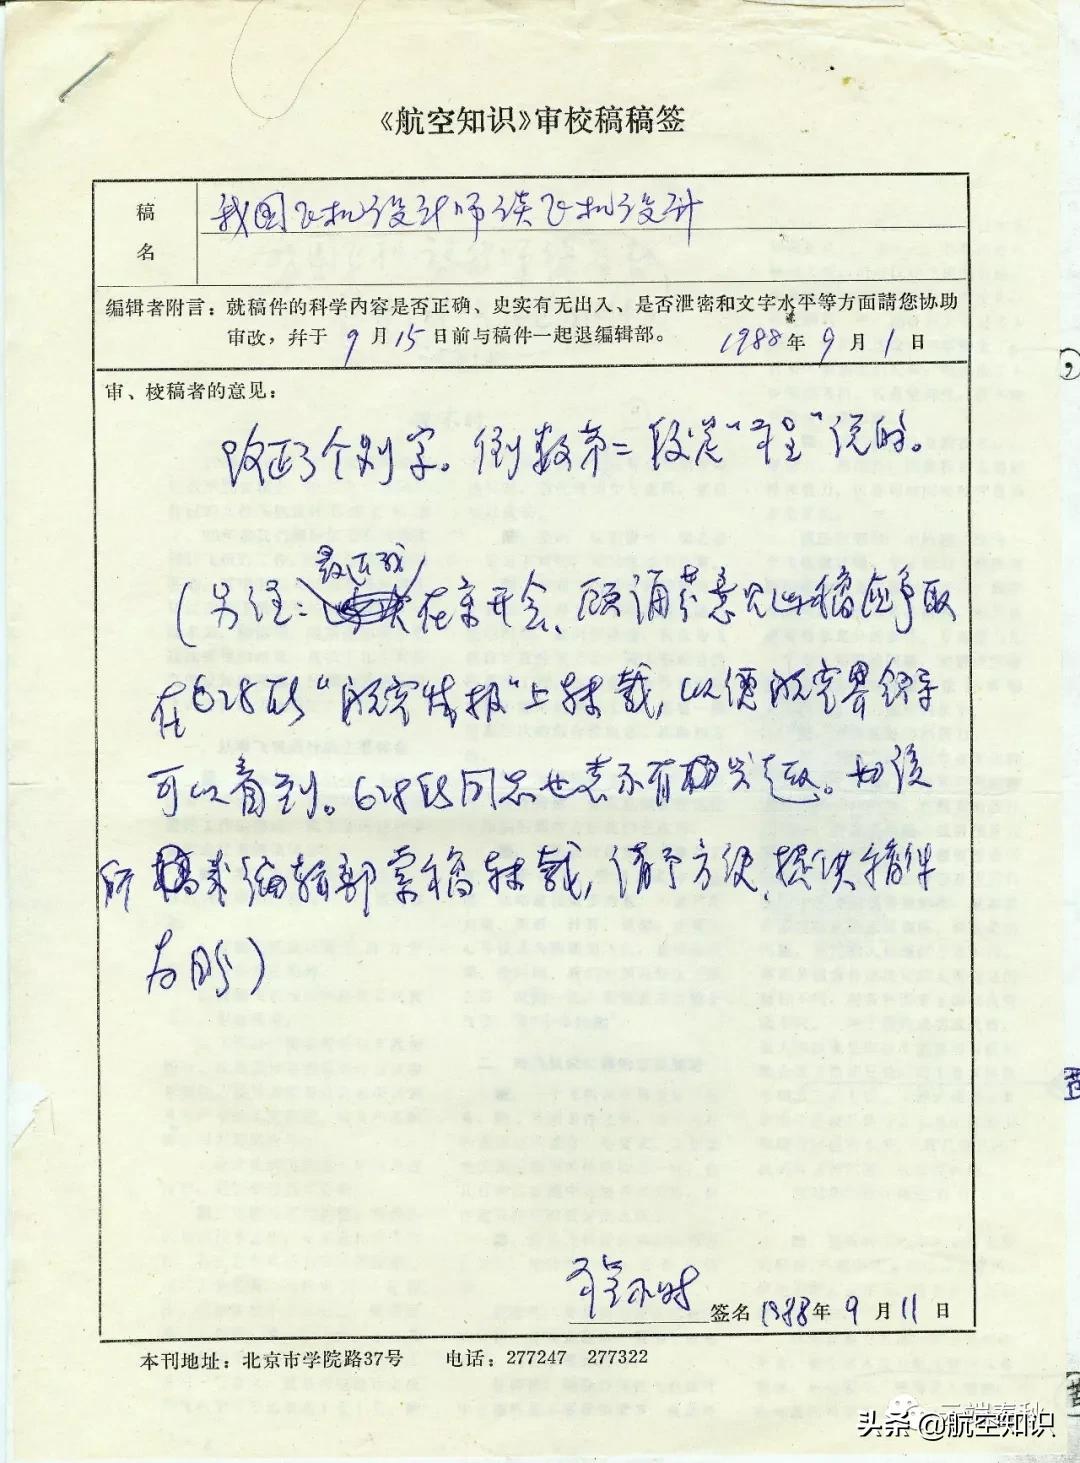 《航空知识》审校稿稿签
稿名
我国飞机设计师谈飞机设计
编辑者附言：就稿件的科学内容是否正确、史实有无出入、是否泄密和文字水平等方面請您协助
审改，幷于 9 月 15 日前与稿件一起退编辑部。 1988 年 9 月 1 日
审、校稿者的意见：
改正了个别字。倒数第二段是“程”说的。
最近我
（另注：在京开会、顾诵芬意见此稿应争取
在628所“航空情报”上转载，以便航空界领导
可以看到。628所同志也表示有兴趣。如该
所来编辑部索稿转载，请予方便，提供稿件
为盼）
程不时
签名 1988 年 9 月 11 日
本刊地址：北京市学院路37号 电话：277247 277322
头条 @航空知识